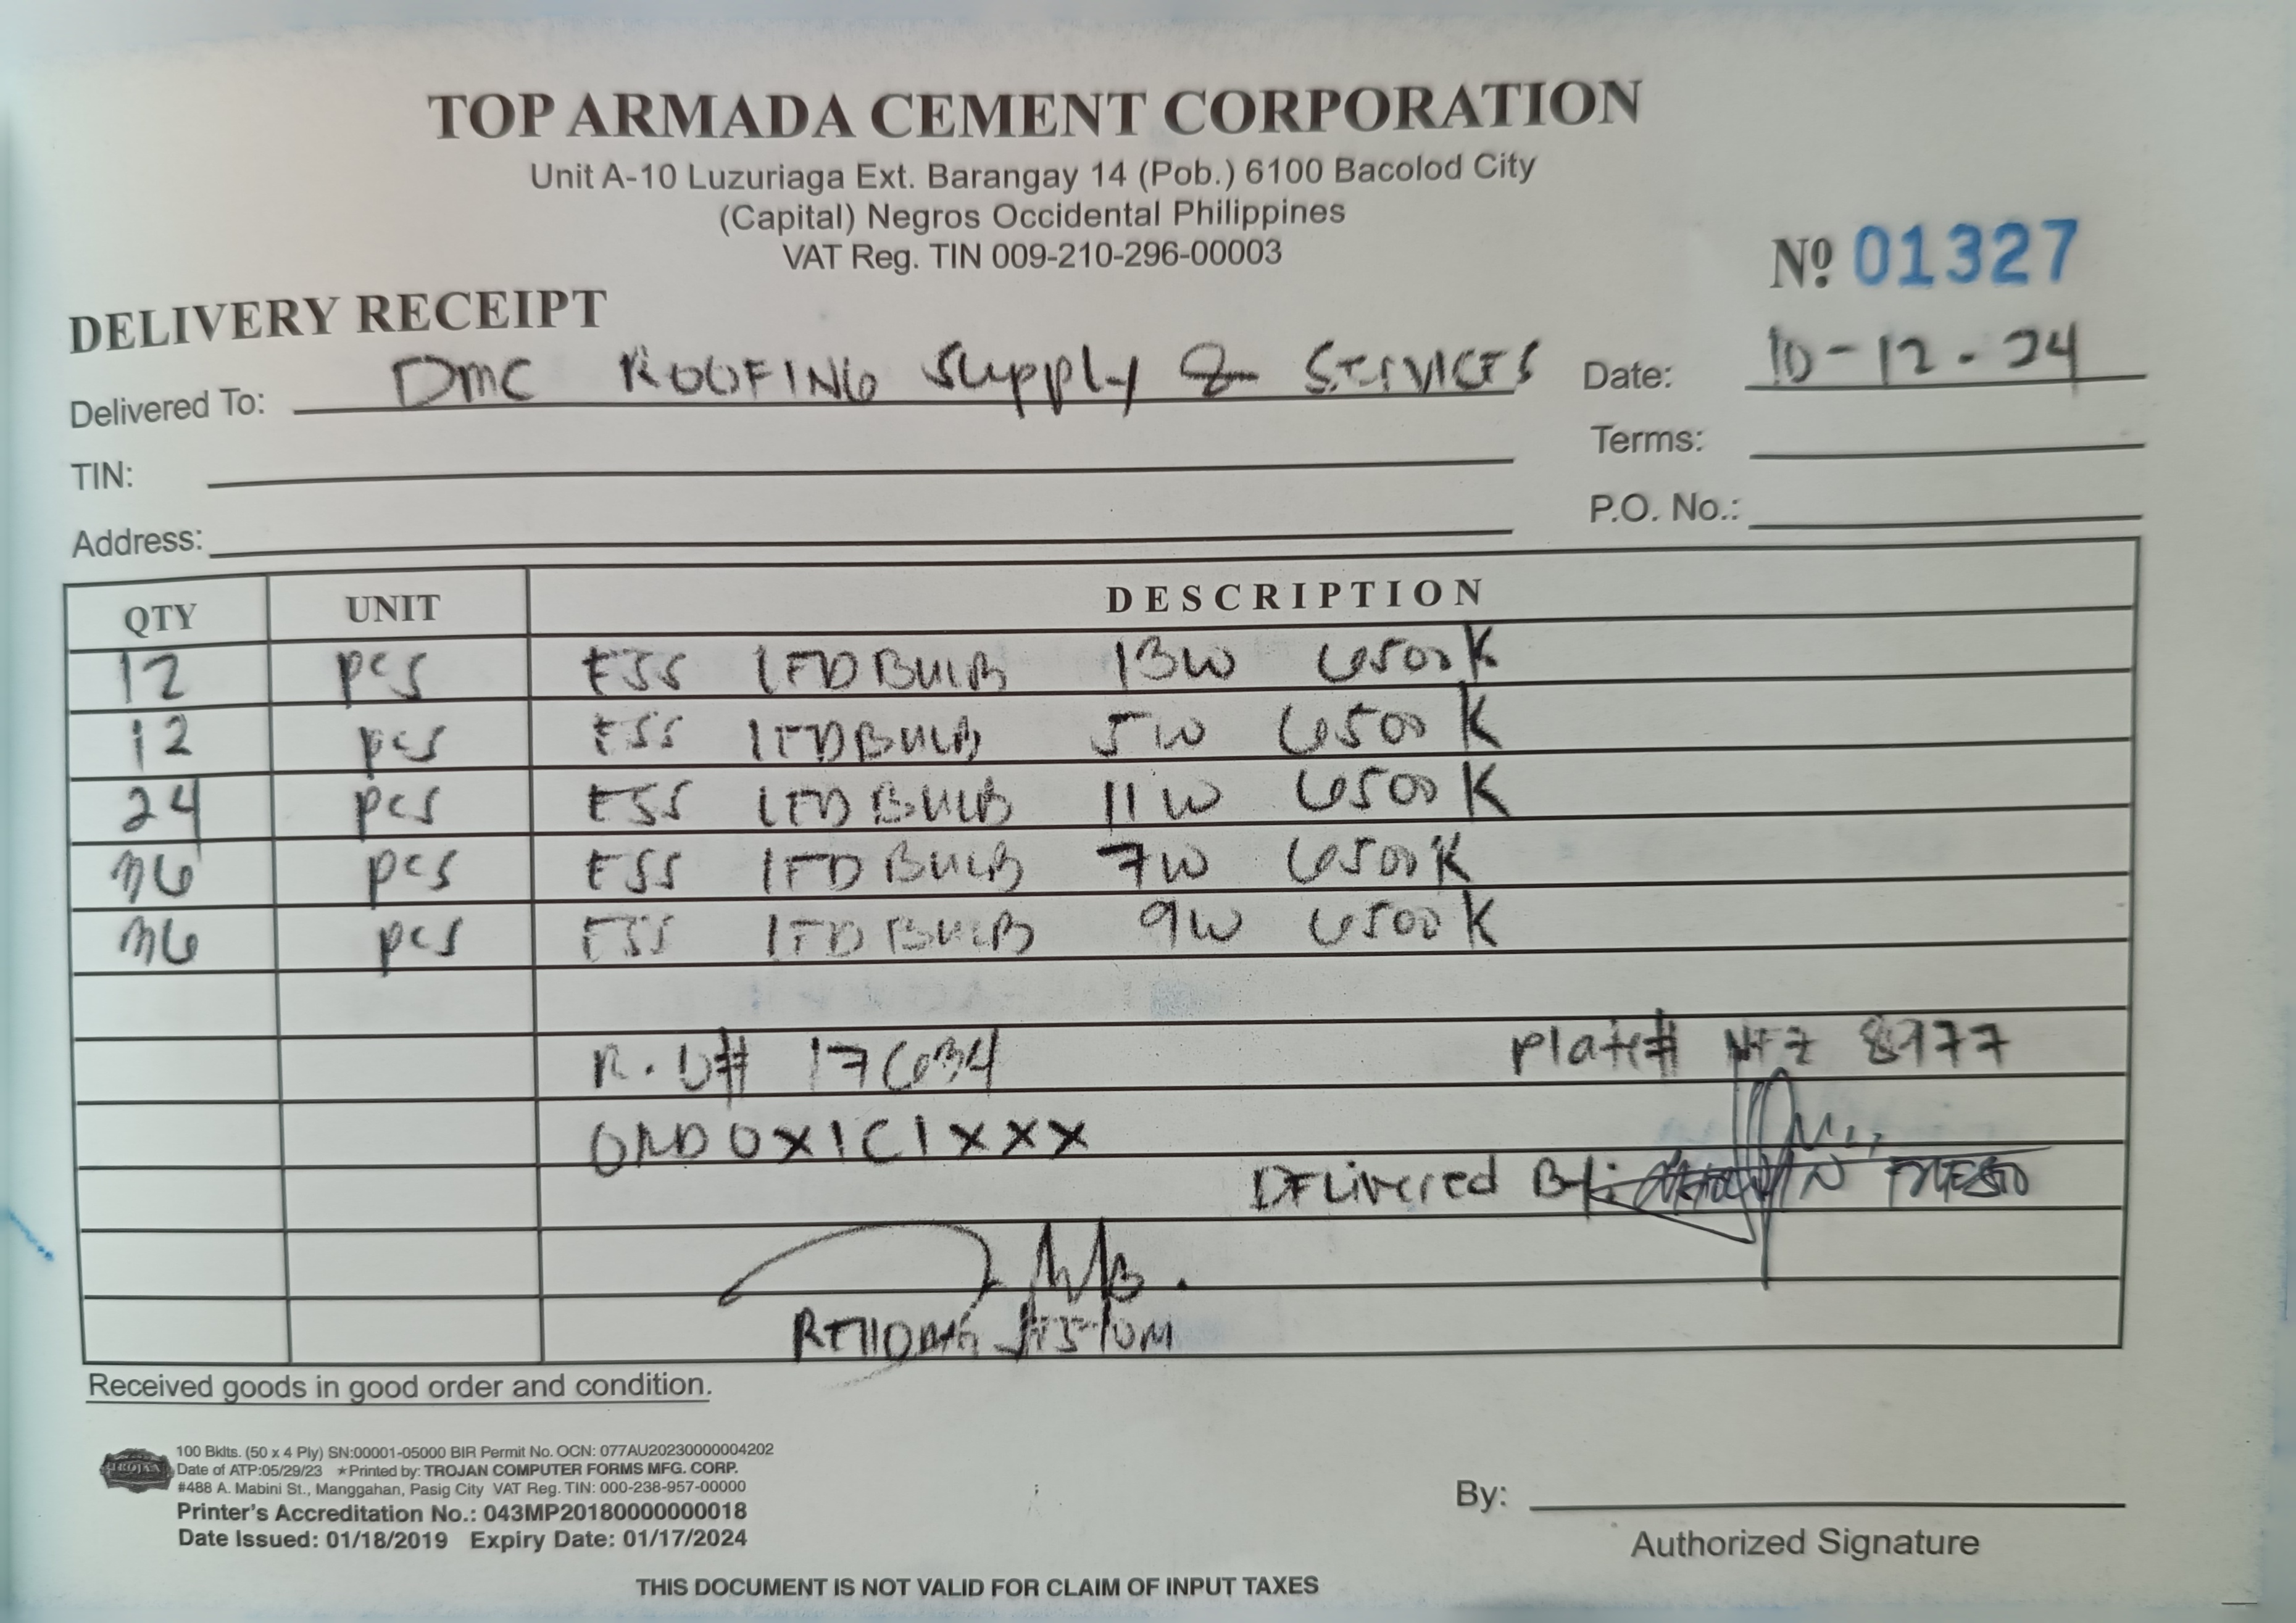 TOP ARMADA CEMENT CORPORATION
Unit A-10 Luzuriaga Ext. Barangay 14 (Pob.) 6100 Bacolod City
(Capital) Negros Occidental Philippines
VAT Reg. TIN 009-210-296-00003
Nº 01327
DELIVERY RECEIPT
Delivered To: DMC ROOFING Supply & SERVICES Date: 10-12-24
TIN: Terms:
Address: P.O. No.:
QTY UNIT DESCRIPTION
12 pcs ESS LED BULB 13W 6500K
12 pcs ESS LED BULB 5W 6500K
24 pcs ESS LED BULB 11W 6500K
36 pcs ESS LED BULB 7W 6500K
36 pcs ESS LED BULB 9W 6500K
R.U# 17634 Plate# 8977
0X1C1XXX
DELivered By:
Received goods in good order and condition.
100 Bklts. (50 x 4 Ply) SN:00001-05000 BIR Permit No. OCN: 077AU20230000004202
TROJAN Date of ATP:05/29/23 ★Printed by: TROJAN COMPUTER FORMS MFG. CORP.
#488 A. Mabini St., Manggahan, Pasig City VAT Reg. TIN: 000-238-957-00000
Printer's Accreditation No.: 043MP20180000000018
Date Issued: 01/18/2019 Expiry Date: 01/17/2024
By:
Authorized Signature
THIS DOCUMENT IS NOT VALID FOR CLAIM OF INPUT TAXES